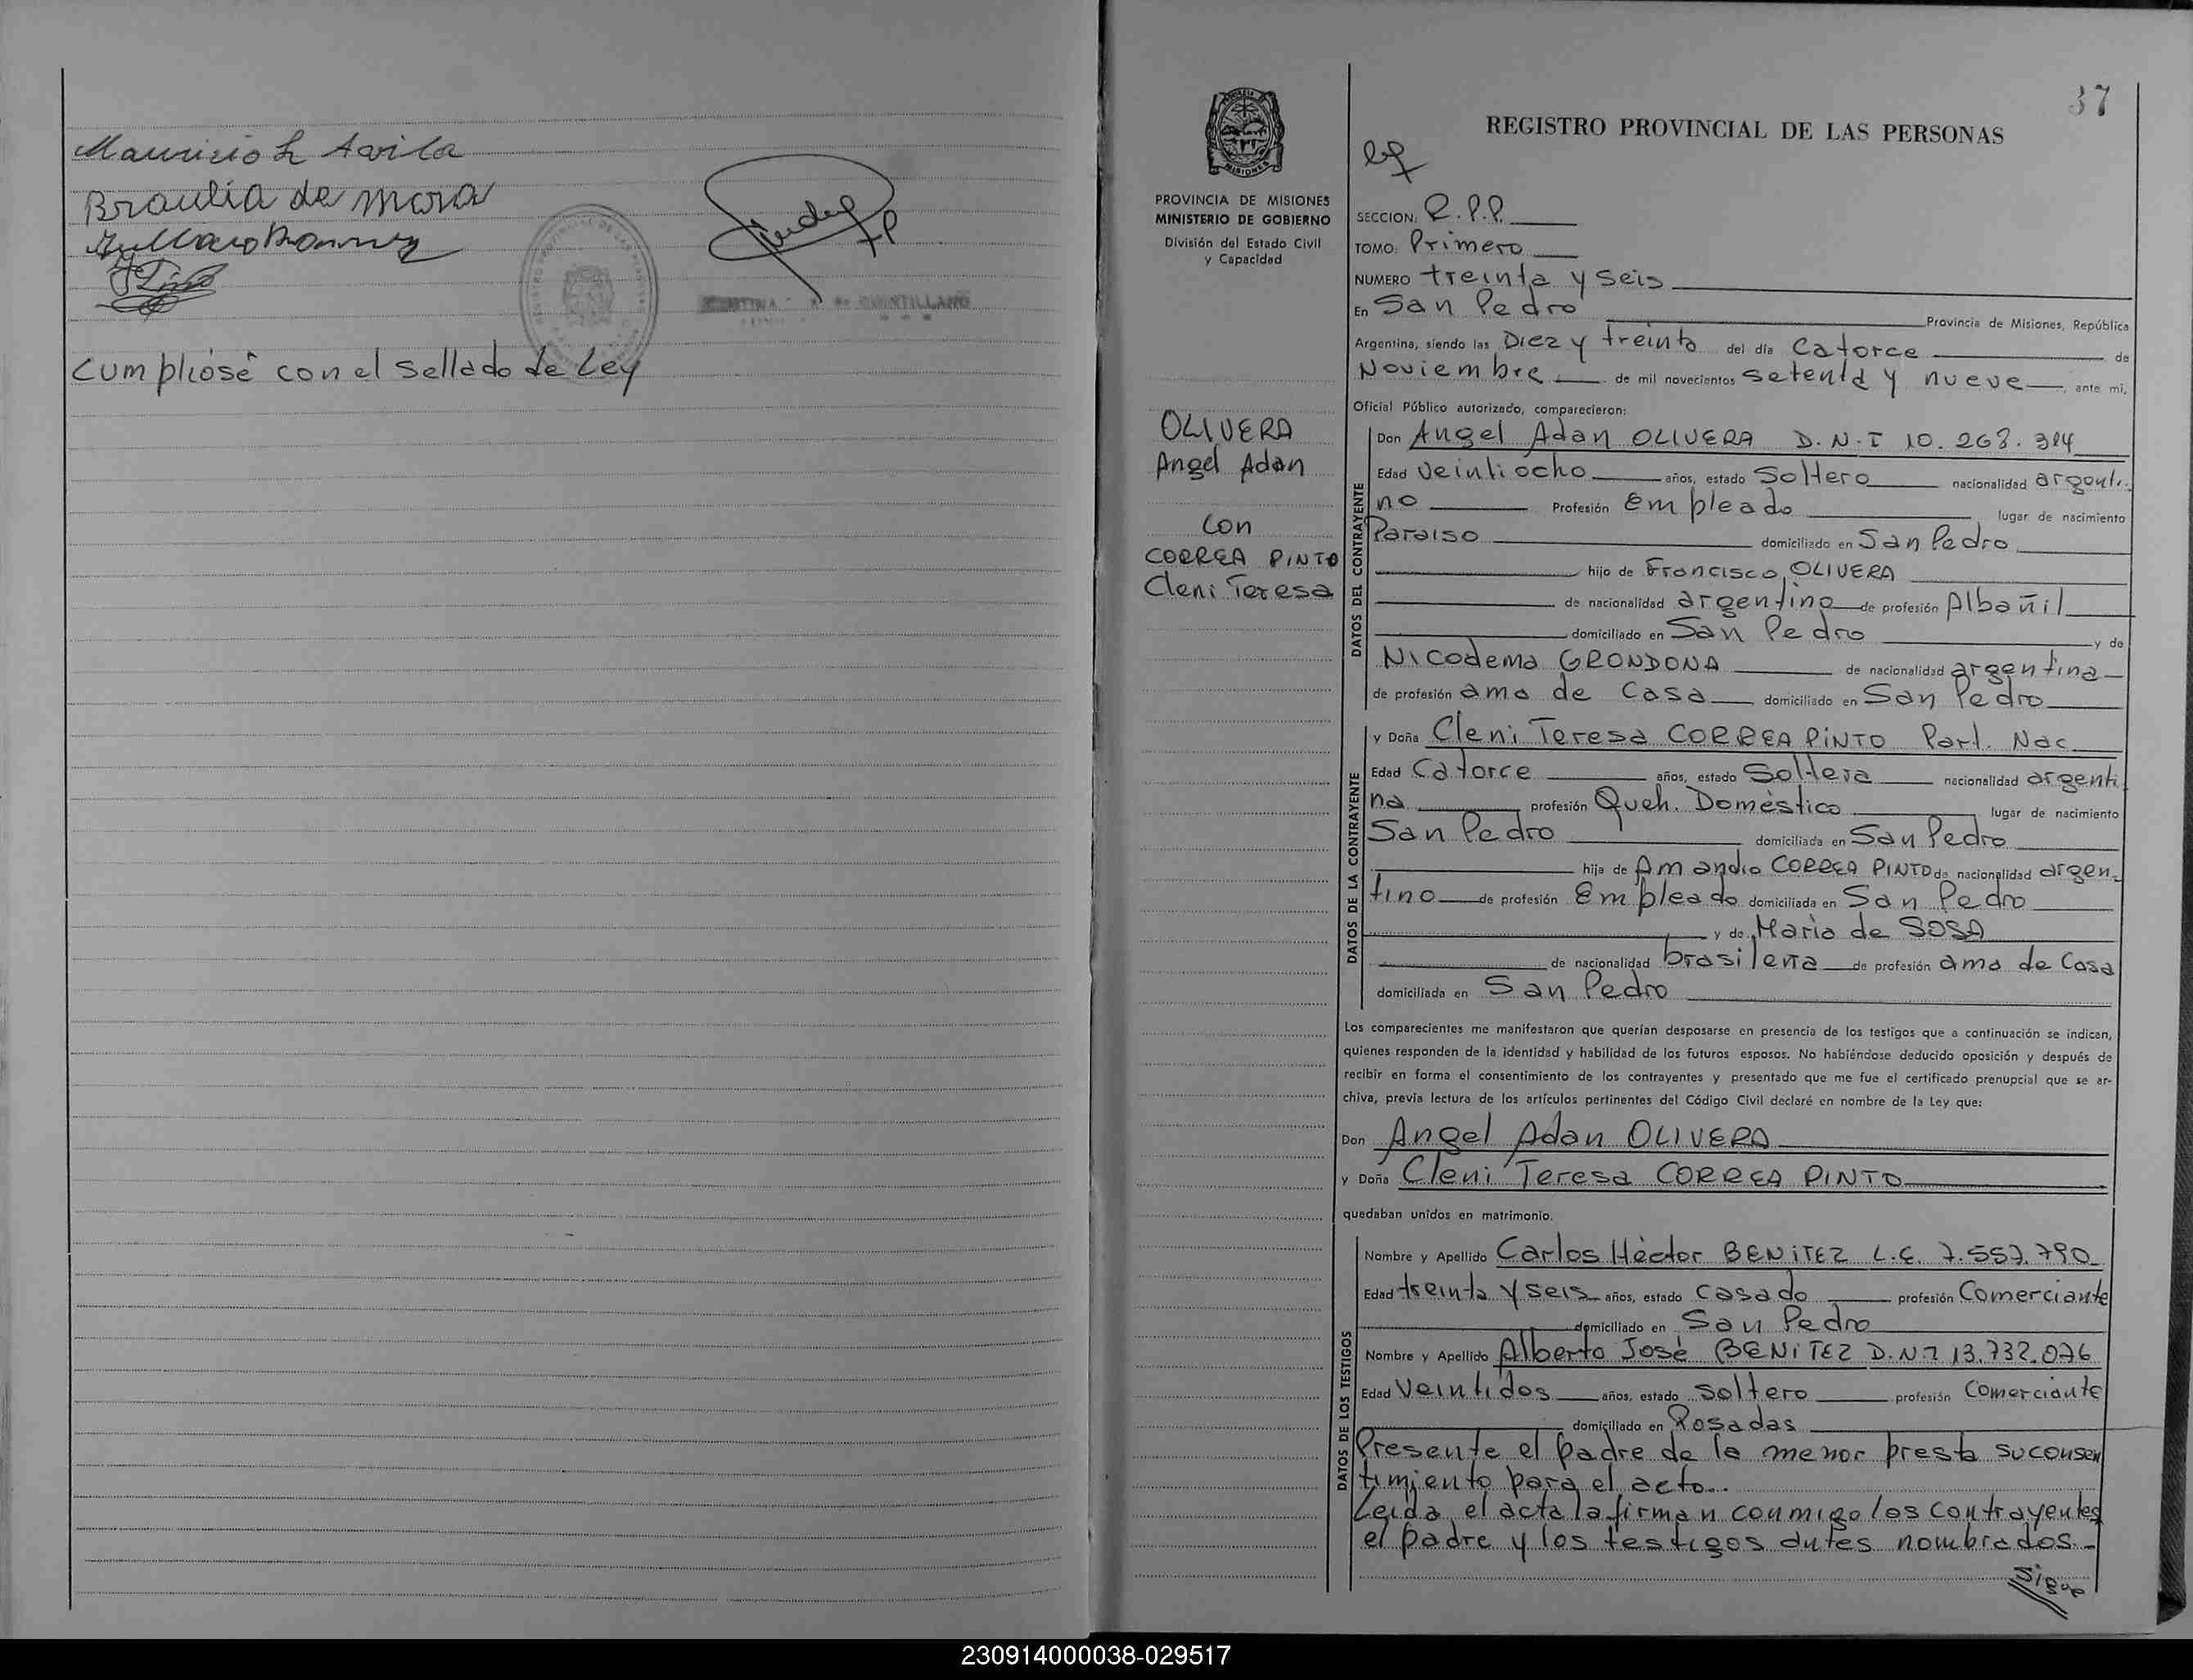 Mauricio L Avila
Braulia de Mora
Cumpliose con el Sellado de Ley
37
PROVINCIA DE MISIONES
MINISTERIO DE GOBIERNO
División del Estado Civil
y Capacidad
OLIVERA
Angel Adan
Con
CORREA PINTO
Cleni Teresa
REGISTRO PROVINCIAL DE LAS PERSONAS
SECCION: R.P.P.
TOMO: Primero
NUMERO treinta y seis
En San Pedro Provincia de Misiones, República
Argentina, siendo las Diez y treinta del día Catorce de
Noviembre de mil novecientos setenta y nueve, ante mi,
Oficial Público autorizado, comparecieron:
DATOS DEL CONTRAYENTE
Don Angel Adan OLIVERA D.N.I 10.268.
Edad veintiocho años, estado Soltero nacionalidad argenti
no Profesión Empleado lugar de nacimiento
Paraiso domiciliado en San Pedro
hijo de Francisco OLIVERA
de nacionalidad argentino de profesión Albañil
domiciliado en San Pedro y de
Nicodema GRONDONA de nacionalidad argentina
de profesión ama de Casa domiciliado en San Pedro
DATOS DE LA CONTRAYENTE
y Doña Cleni Teresa CORREA PINTO Part. Nac.
Edad Catorce años, estado Soltera nacionalidad argenti
na profesión Queh. Doméstico lugar de nacimiento
San Pedro domiciliada en San Pedro
hija de Amandio CORREA PINTO de nacionalidad argen-
tino de profesión Empleado domiciliada en San Pedro
y de Maria de SOSA
de nacionalidad brasileña de profesión ama de Casa
domiciliada en San Pedro
Los comparecientes me manifestaron que querían desposarse en presencia de los testigos que a continuación se indican,
quienes responden de la identidad y habilidad de los futuros esposos. No habiéndose deducido oposición y después de
recibir en forma el consentimiento de los contrayentes y presentado que me fue el certificado prenupcial que se ar-
chiva, previa lectura de los artículos pertinentes del Código Civil declaré en nombre de la Ley que:
Don Angel Adan OLIVERA
y Doña Cleni Teresa CORREA PINTO
quedaban unidos en matrimonio.
DATOS DE LOS TESTIGOS
Nombre y Apellido Carlos Héctor BENITEZ L.E. 7.557.790
Edad treinta y seis años, estado Casado profesión Comerciante
domiciliado en San Pedro
Nombre y Apellido Alberto José BENITEZ D.N.I 13.732.076
Edad Veintidos años, estado soltero profesión Comerciante
domiciliado en Posadas
Presente el padre de la menor presta su consen
timiento para el acto..
Leida el acta la firman conmigo los contrayentes
el padre y los testigos antes nombrados.-
Sigue
230914000038-029517